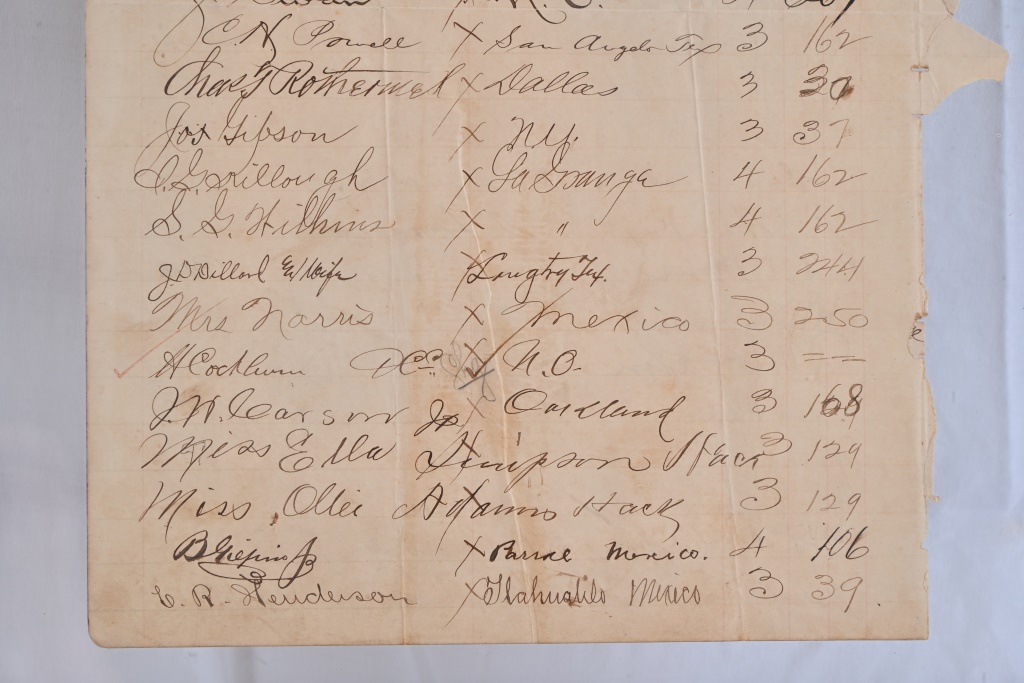 C. N. Powell X San Angelo Tex 3 162
Chas F Rothermel X Dallas 3 30
Jos Gipson X N.Y. 3 37
Killough X La Grange 4 162
S. G. Wilkins X " 4 162
J D Dillard & Wife X Langtry Tex. 3 244
Mrs Norris X Mexico 3 250
H Cockburn X N.O. 3 = =
J. W. Carson Jr X Oakland 3 168
Miss Ella Simpson Hack 3 129
Miss Ollie Adams Hack 3 129
X Parral Mexico. 4 106
C. R. Henderson X Tlahualilo Mexico 3 39